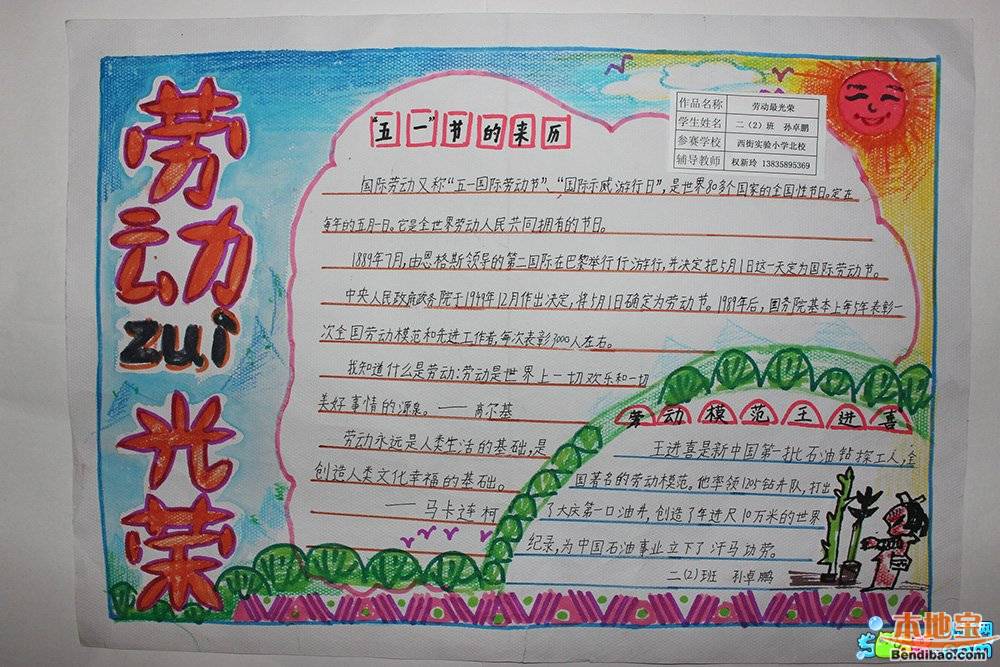 劳动
zui
光
荣
作品名称 劳动最光荣
学生姓名 二（2）班 孙卓鹏
参赛学校 西街实验小学北校
辅导教师 权新玲 13835895369
"五一"节的来历
国际劳动又称"五一国际劳动节"、"国际示威游行日"，是世界80多个国家的全国性节日。定在
每年的五月一日。它是全世界劳动人民共同拥有的节日。
1889年7月，由恩格斯领导的第二国际在巴黎举行行游行，并决定把5月1日这一天定为国际劳动节。
中央人民政府政务院于1949年12月作出决定，将5月1日确定为劳动节。1989年后，国务院基本上每5年表彰一
次全国劳动模范和先进工作者，每次表彰3000人左右。
我知道什么是劳动：劳动是世界上一切欢乐和一切
美好事情的源泉。——高尔基
劳动永远是人类生活的基础，是
创造人类文化幸福的基础。
——马卡连柯
劳动模范王进喜
王进喜是新中国第一批石油钻探工人，全
国著名的劳动模范。他率领1205钻井队，打出
了大庆第一口油井，创造了年进尺10万米的世界
纪录，为中国石油事业立下了汗马功劳。
二（2）班 孙卓鹏
本地宝
Bendibao.com